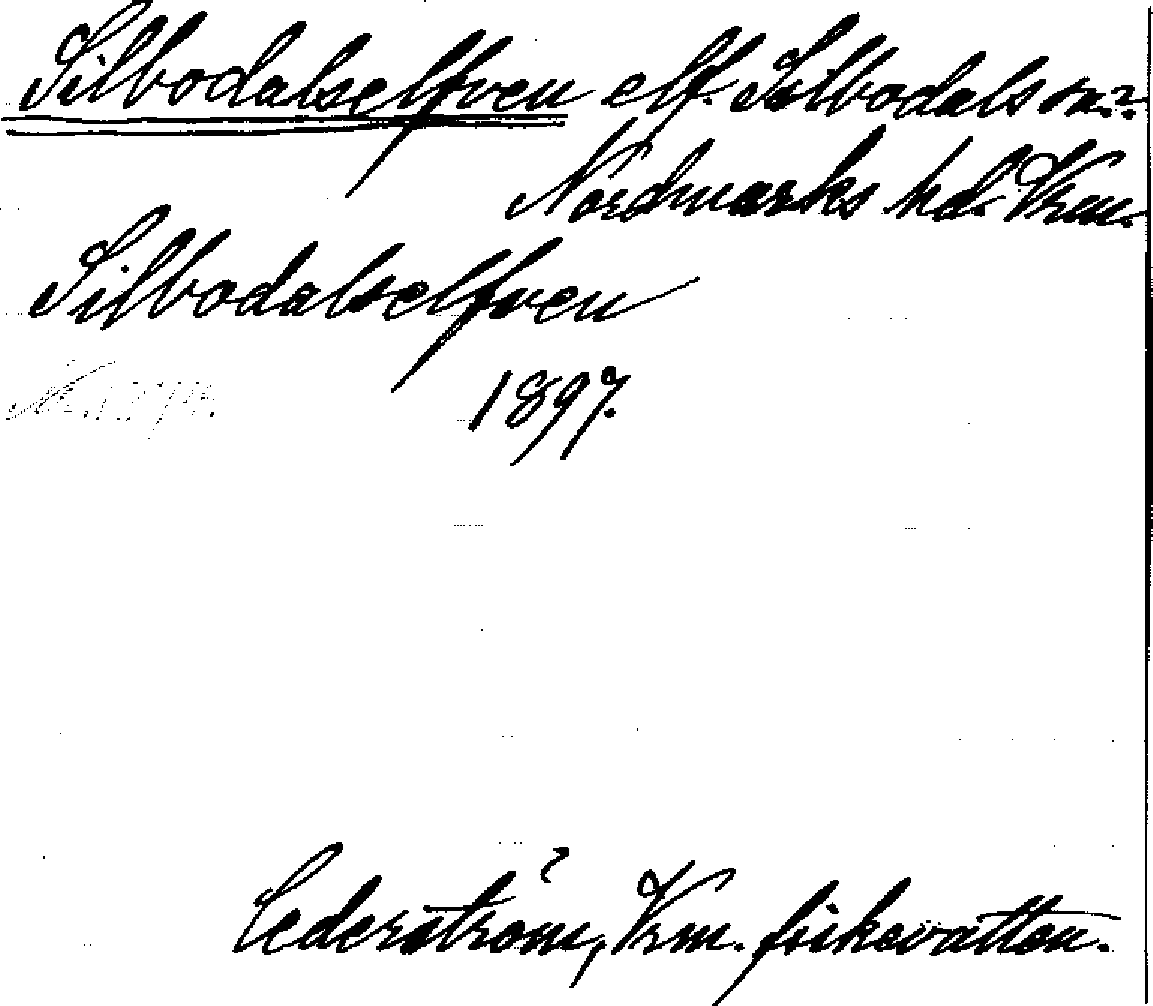 Silbodalselfven elf. Silbodals sn?
Nordmarks hd. Vrm.
Silbodalselfven
1897.
Cederström, Vrm. fiskevatten.